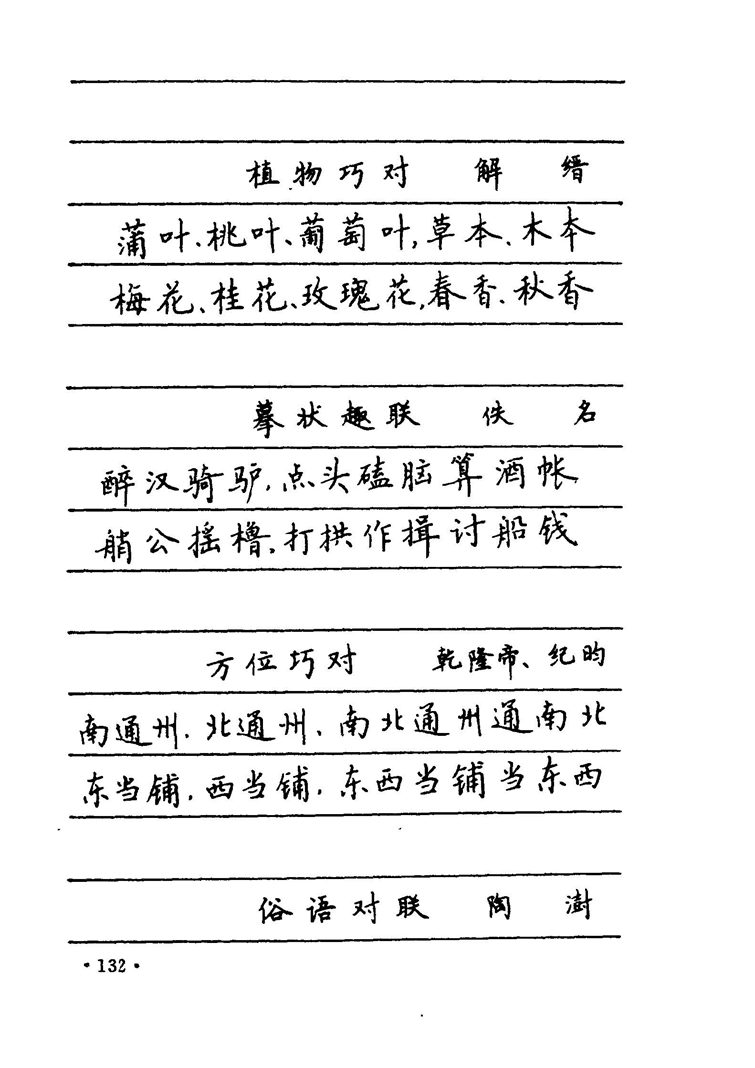 植物巧对 解 缙
蒲叶、桃叶、葡萄叶,草本、木本
梅花、桂花、玫瑰花,春香、秋香
摹状趣联 佚 名
醉汉骑驴,点头磕脑算酒帐
艄公摇橹,打拱作揖讨船钱
方位巧对 乾隆帝、纪昀
南通州,北通州,南北通州通南北
东当铺,西当铺,东西当铺当东西
俗语对联 陶 澍
·132·